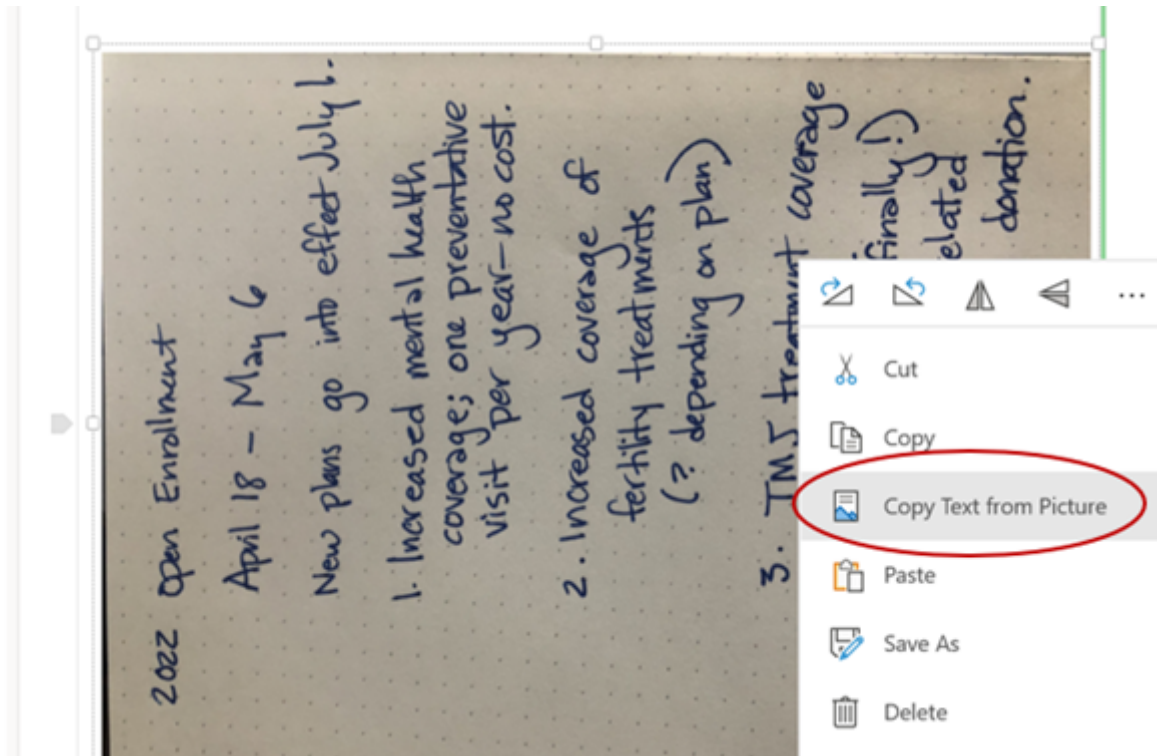 2022 Open Enrollment
April 18 - May 6
New plans go into effect July 1.
1. Increased mental health
coverage; one preventative
visit per year-no cost.
2. Increased coverage of
fertility treatments
(? depending on plan)
3. TMJ treatment coverage
finally!)
elated
donation.
Cut
Copy
Copy Text from Picture
Paste
Save As
Delete